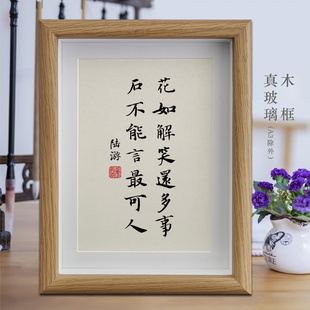 花如解笑還多事
石不能言最可人
陆游
木框
真玻璃
(A3除外)